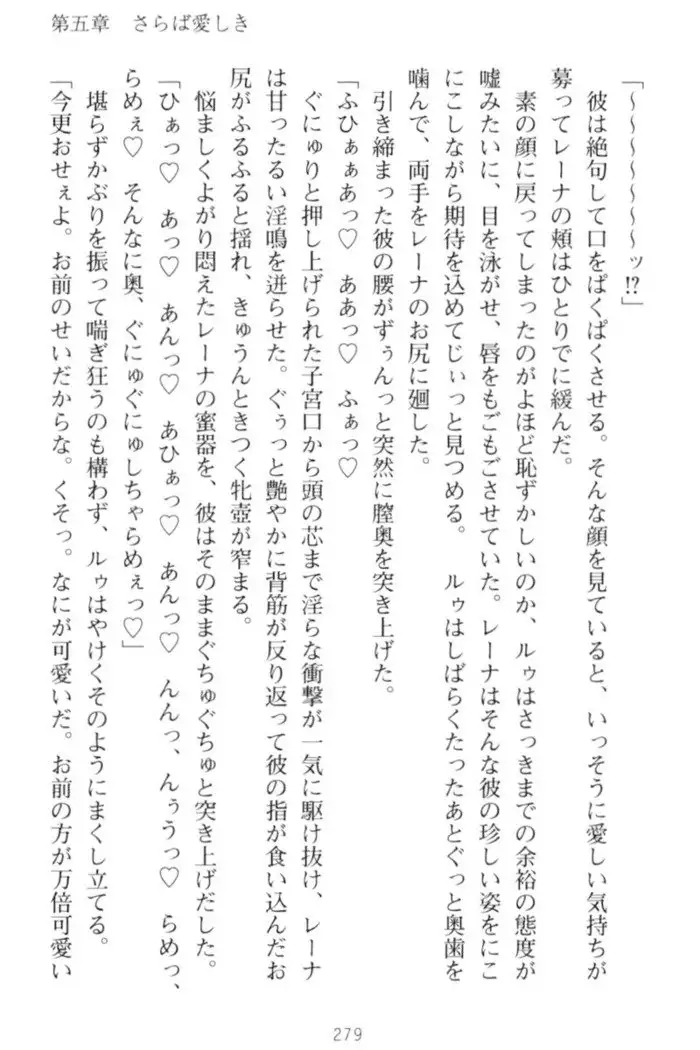 第五章　さらば愛しき
「～～～～～～ッ!?」
　彼は絶句して口をぱくぱくさせる。そんな顔を見ていると、いっそうに愛しい気持ちが
募ってレーナの頬はひとりでに緩んだ。
　素の顔に戻ってしまったのがよほど恥ずかしいのか、ルゥはさっきまでの余裕の態度が
嘘みたいに、目を泳がせ、唇をもごもごさせていた。レーナはそんな彼の珍しい姿をにこ
にこしながら期待を込めてじぃっと見つめる。　ルゥはしばらくたったあとぐっと奥歯を
噛んで、両手をレーナのお尻に廻した。
　引き締まった彼の腰がずぅんっと突然に膣奥を突き上げた。
「ふひぁぁあっ♡　ああっ♡　ふぁっ♡
　ぐにゅりと押し上げられた子宮口から頭の芯まで淫らな衝撃が一気に駆け抜け、レーナ
は甘ったるい淫鳴を迸らせた。ぐぅっと艶やかに背筋が反り返って彼の指が食い込んだお
尻がふるふると揺れ、きゅうんときつく牝壺が窄まる。
　悩ましくよがり悶えたレーナの蜜器を、彼はそのままぐちゅぐちゅと突き上げだした。
「ひぁっ♡　あっ♡　あんっ♡　あひぁっ♡　あんっ♡　んんっ、んぅうっ♡　らめっ、
らめぇ♡　そんなに奥、ぐにゅぐにゅしちゃらめぇっ♡」
　堪らずかぶりを振って喘ぎ狂うのも構わず、ルゥはやけくそのようにまくし立てる。
「今更おせぇよ。お前のせいだからな。くそっ。なにが可愛いだ。お前の方が万倍可愛い
279